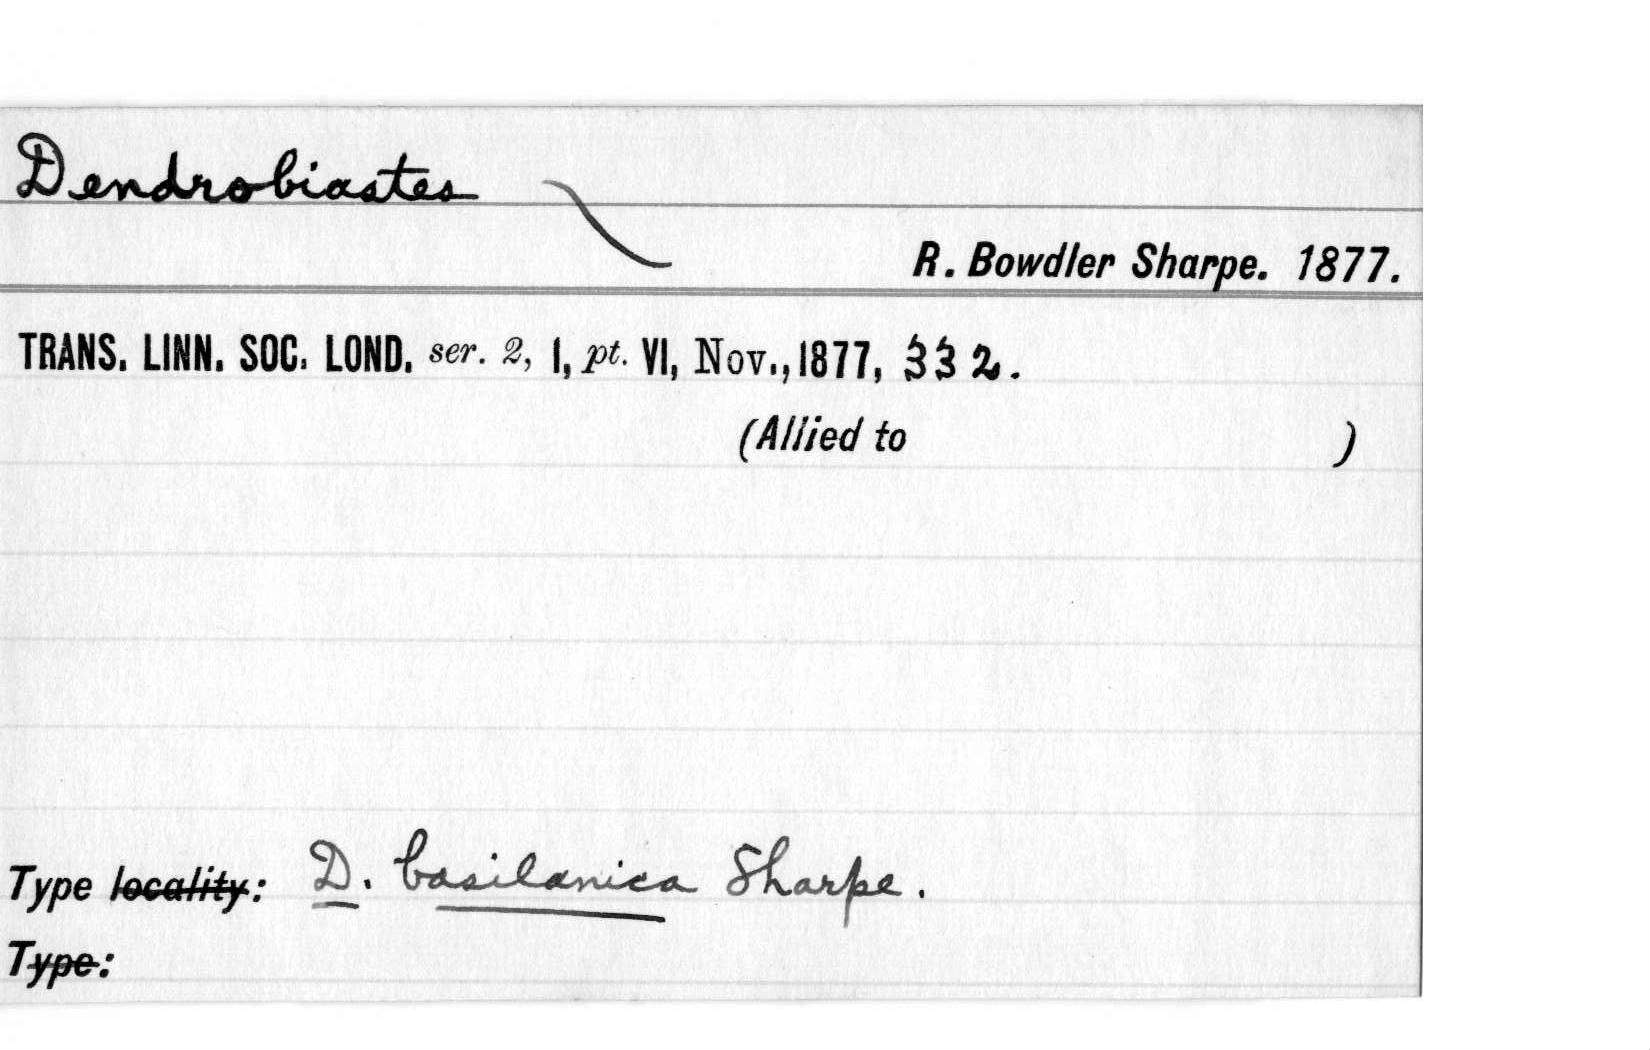 Dendrobiastes
R. Bowdler Sharpe. 1877.
TRANS. LINN. SOC. LOND. ser. 2, I, pt. VI, Nov., 1877, 332.
(Allied to )
Type locality: D. basilanica Sharpe.
Type: